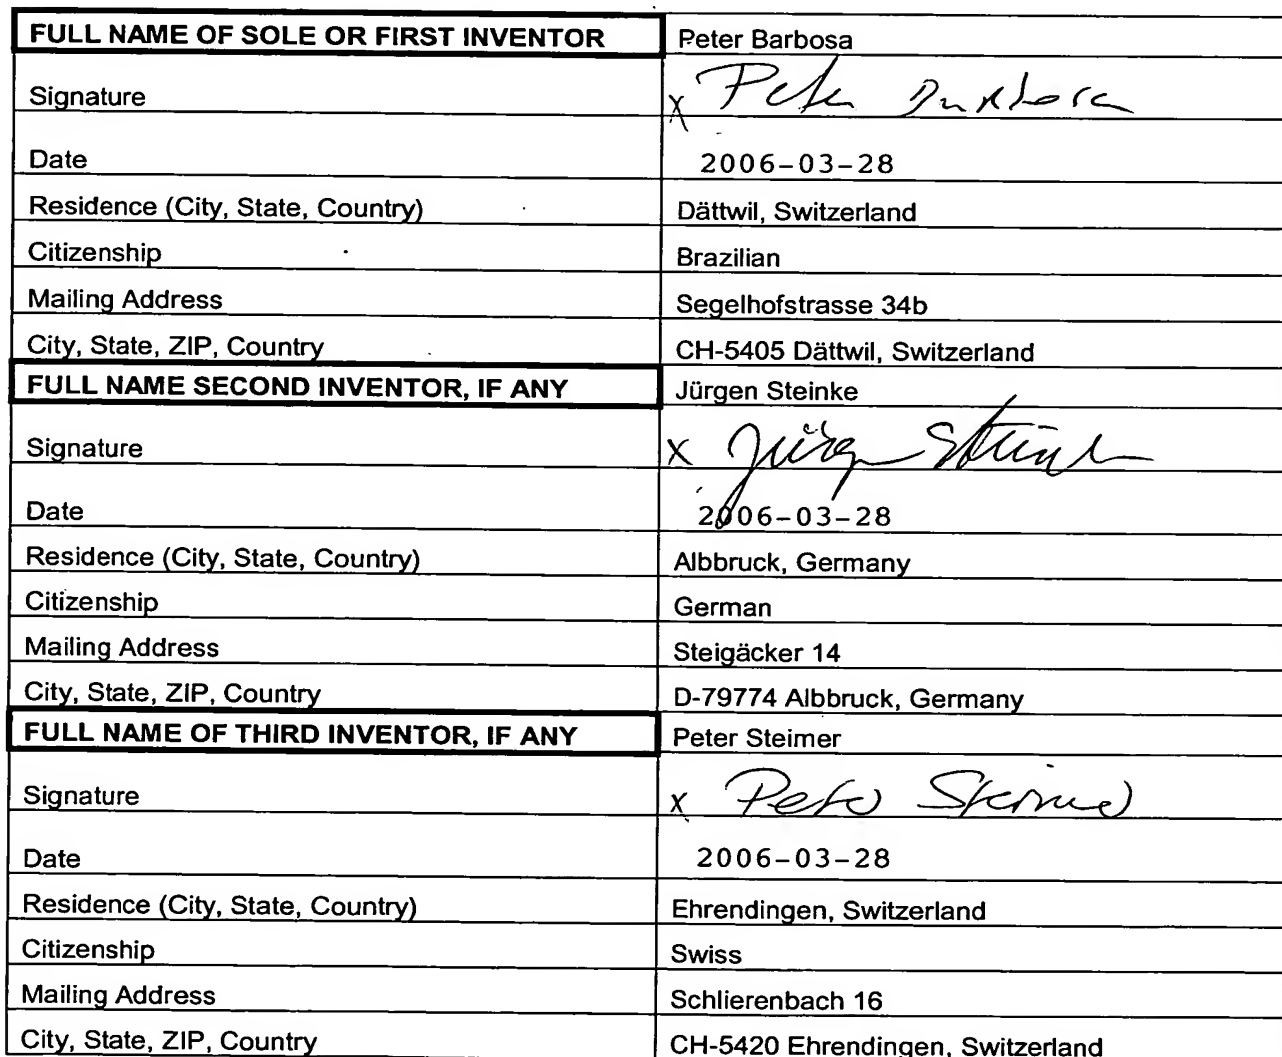 FULL NAME OF SOLE OR FIRST INVENTOR Peter Barbosa
Signature X Peter Barbosa
Date 2006-03-28
Residence (City, State, Country) Dättwil, Switzerland
Citizenship Brazilian
Mailing Address Segelhofstrasse 34b
City, State, ZIP, Country CH-5405 Dättwil, Switzerland
FULL NAME SECOND INVENTOR, IF ANY Jürgen Steinke
Signature X Jürgen Steinke
Date 2006-03-28
Residence (City, State, Country) Albbruck, Germany
Citizenship German
Mailing Address Steigäcker 14
City, State, ZIP, Country D-79774 Albbruck, Germany
FULL NAME OF THIRD INVENTOR, IF ANY Peter Steimer
Signature X Peter Steimer
Date 2006-03-28
Residence (City, State, Country) Ehrendingen, Switzerland
Citizenship Swiss
Mailing Address Schlierenbach 16
City, State, ZIP, Country CH-5420 Ehrendingen, Switzerland